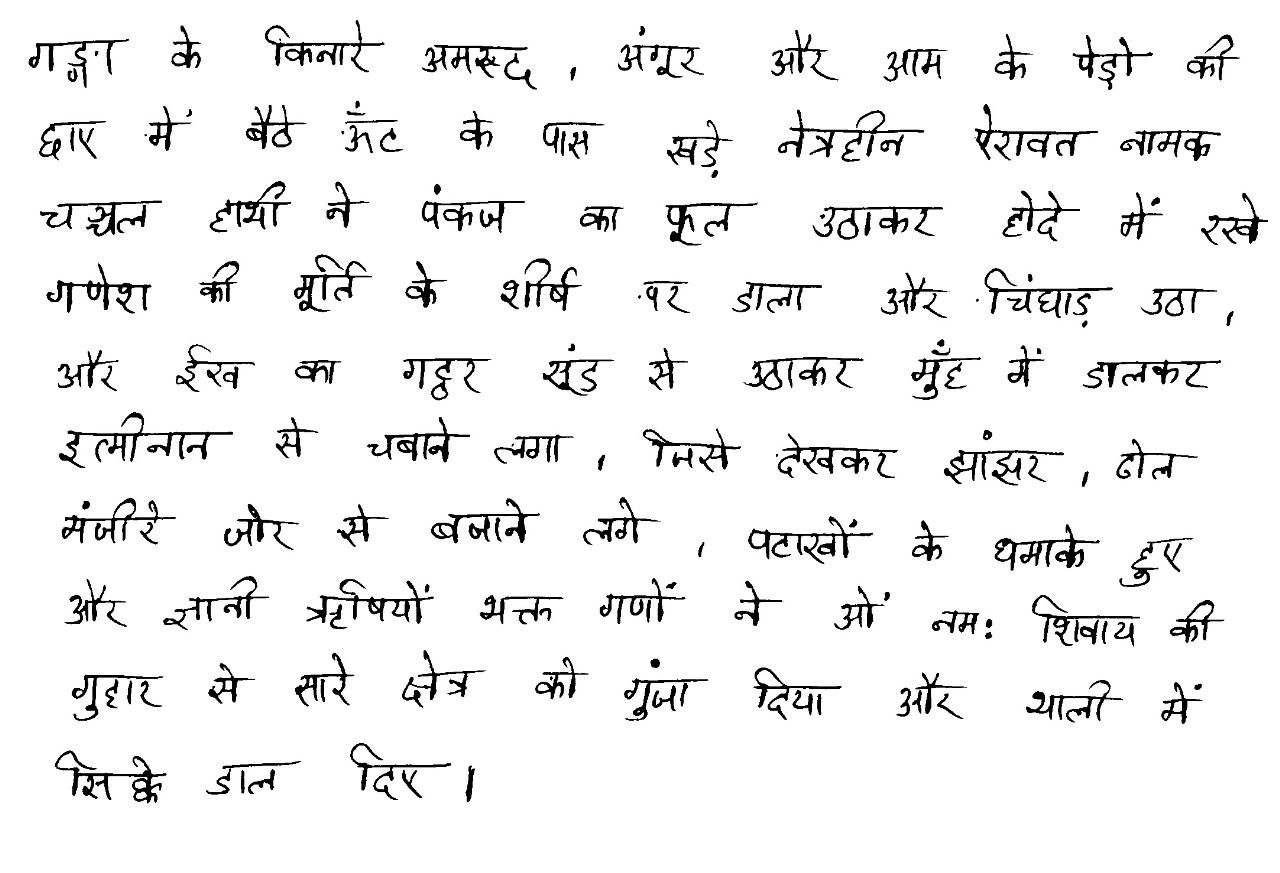 गङ्गा के किनारे अमरूद, अंगूर और आम के पेड़ो की
छाए में बैठे ऊँट के पास खड़े नेत्रहीन ऐरावत नामक
चञ्चल हाथी ने पंकज का फूल उठाकर होदे में रखे
गणेश की मूर्ति के शीर्ष पर डाला और चिंघाड़ उठा,
और ईख का गट्ठर सूंड से उठाकर मुँह में डालकर
इत्मीनान से चबाने लगा, जिसे देखकर झांझर, ढोल
मंजीरे जोर से बजाने लगे, पटाखों के धमाके हुए
और ज्ञानी ऋषियों भक्त गणों ने ओं नमः शिवाय की
गुहार से सारे क्षेत्र को गुंजा दिया और थाली में
सिक्के डाल दिए।